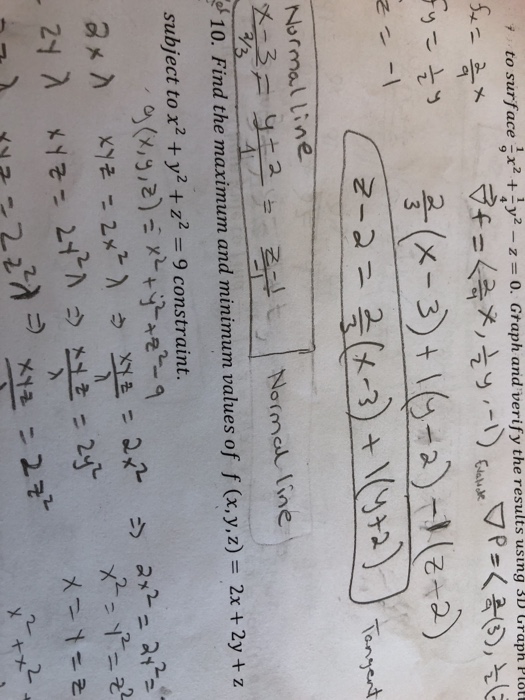 to surface 1/9 x² + 1/4 y² − z = 0. Graph and verify the results using 3D Graph
fx = 2/9 x
∇f = ⟨2/9 x, 1/2 y, −1⟩
∇P = ⟨2/9(3), 1/2(
fy = 1/2 y
z = −1
2/3(x−3) + 1(y−2) − 1(z−2)
z − 2 = 2/3(x−3) + 1(y+2)
Tangent
Normal line
x−3/2/3 = y+2/1 = z−1/−1
Normal line
10. Find the maximum and minimum values of f (x, y, z) = 2x + 2y + z
subject to x² + y² + z² = 9 constraint.
g(x,y,z) = x² + y² + z² − 9
2xλ xyz = 2x²λ ⇒ xyz/λ = 2x² ⇒ 2x² = 2y² =
2yλ xyz = 2y²λ ⇒ xyz/λ = 2y² x² = y² = z²
xyz = 2z²λ ⇒ xyz/λ = 2z² x = y = z
x² + x² +